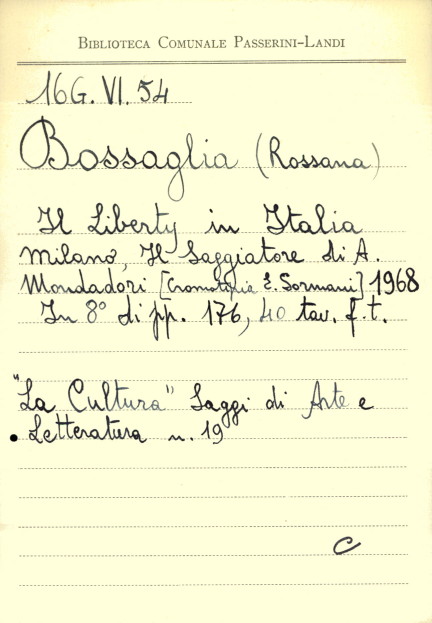 BIBLIOTECA COMUNALE PASSERINI-LANDI
16G. VI. 54
Bossaglia (Rossana)
Il Liberty in Italia
Milano, Il Saggiatore di A.
Mondadori [Cromotipia E. Sormani] 1968
In 8° di pp. 176, 40 tav. f.t.
"La Cultura" Saggi di Arte e
Letteratura n. 19
C